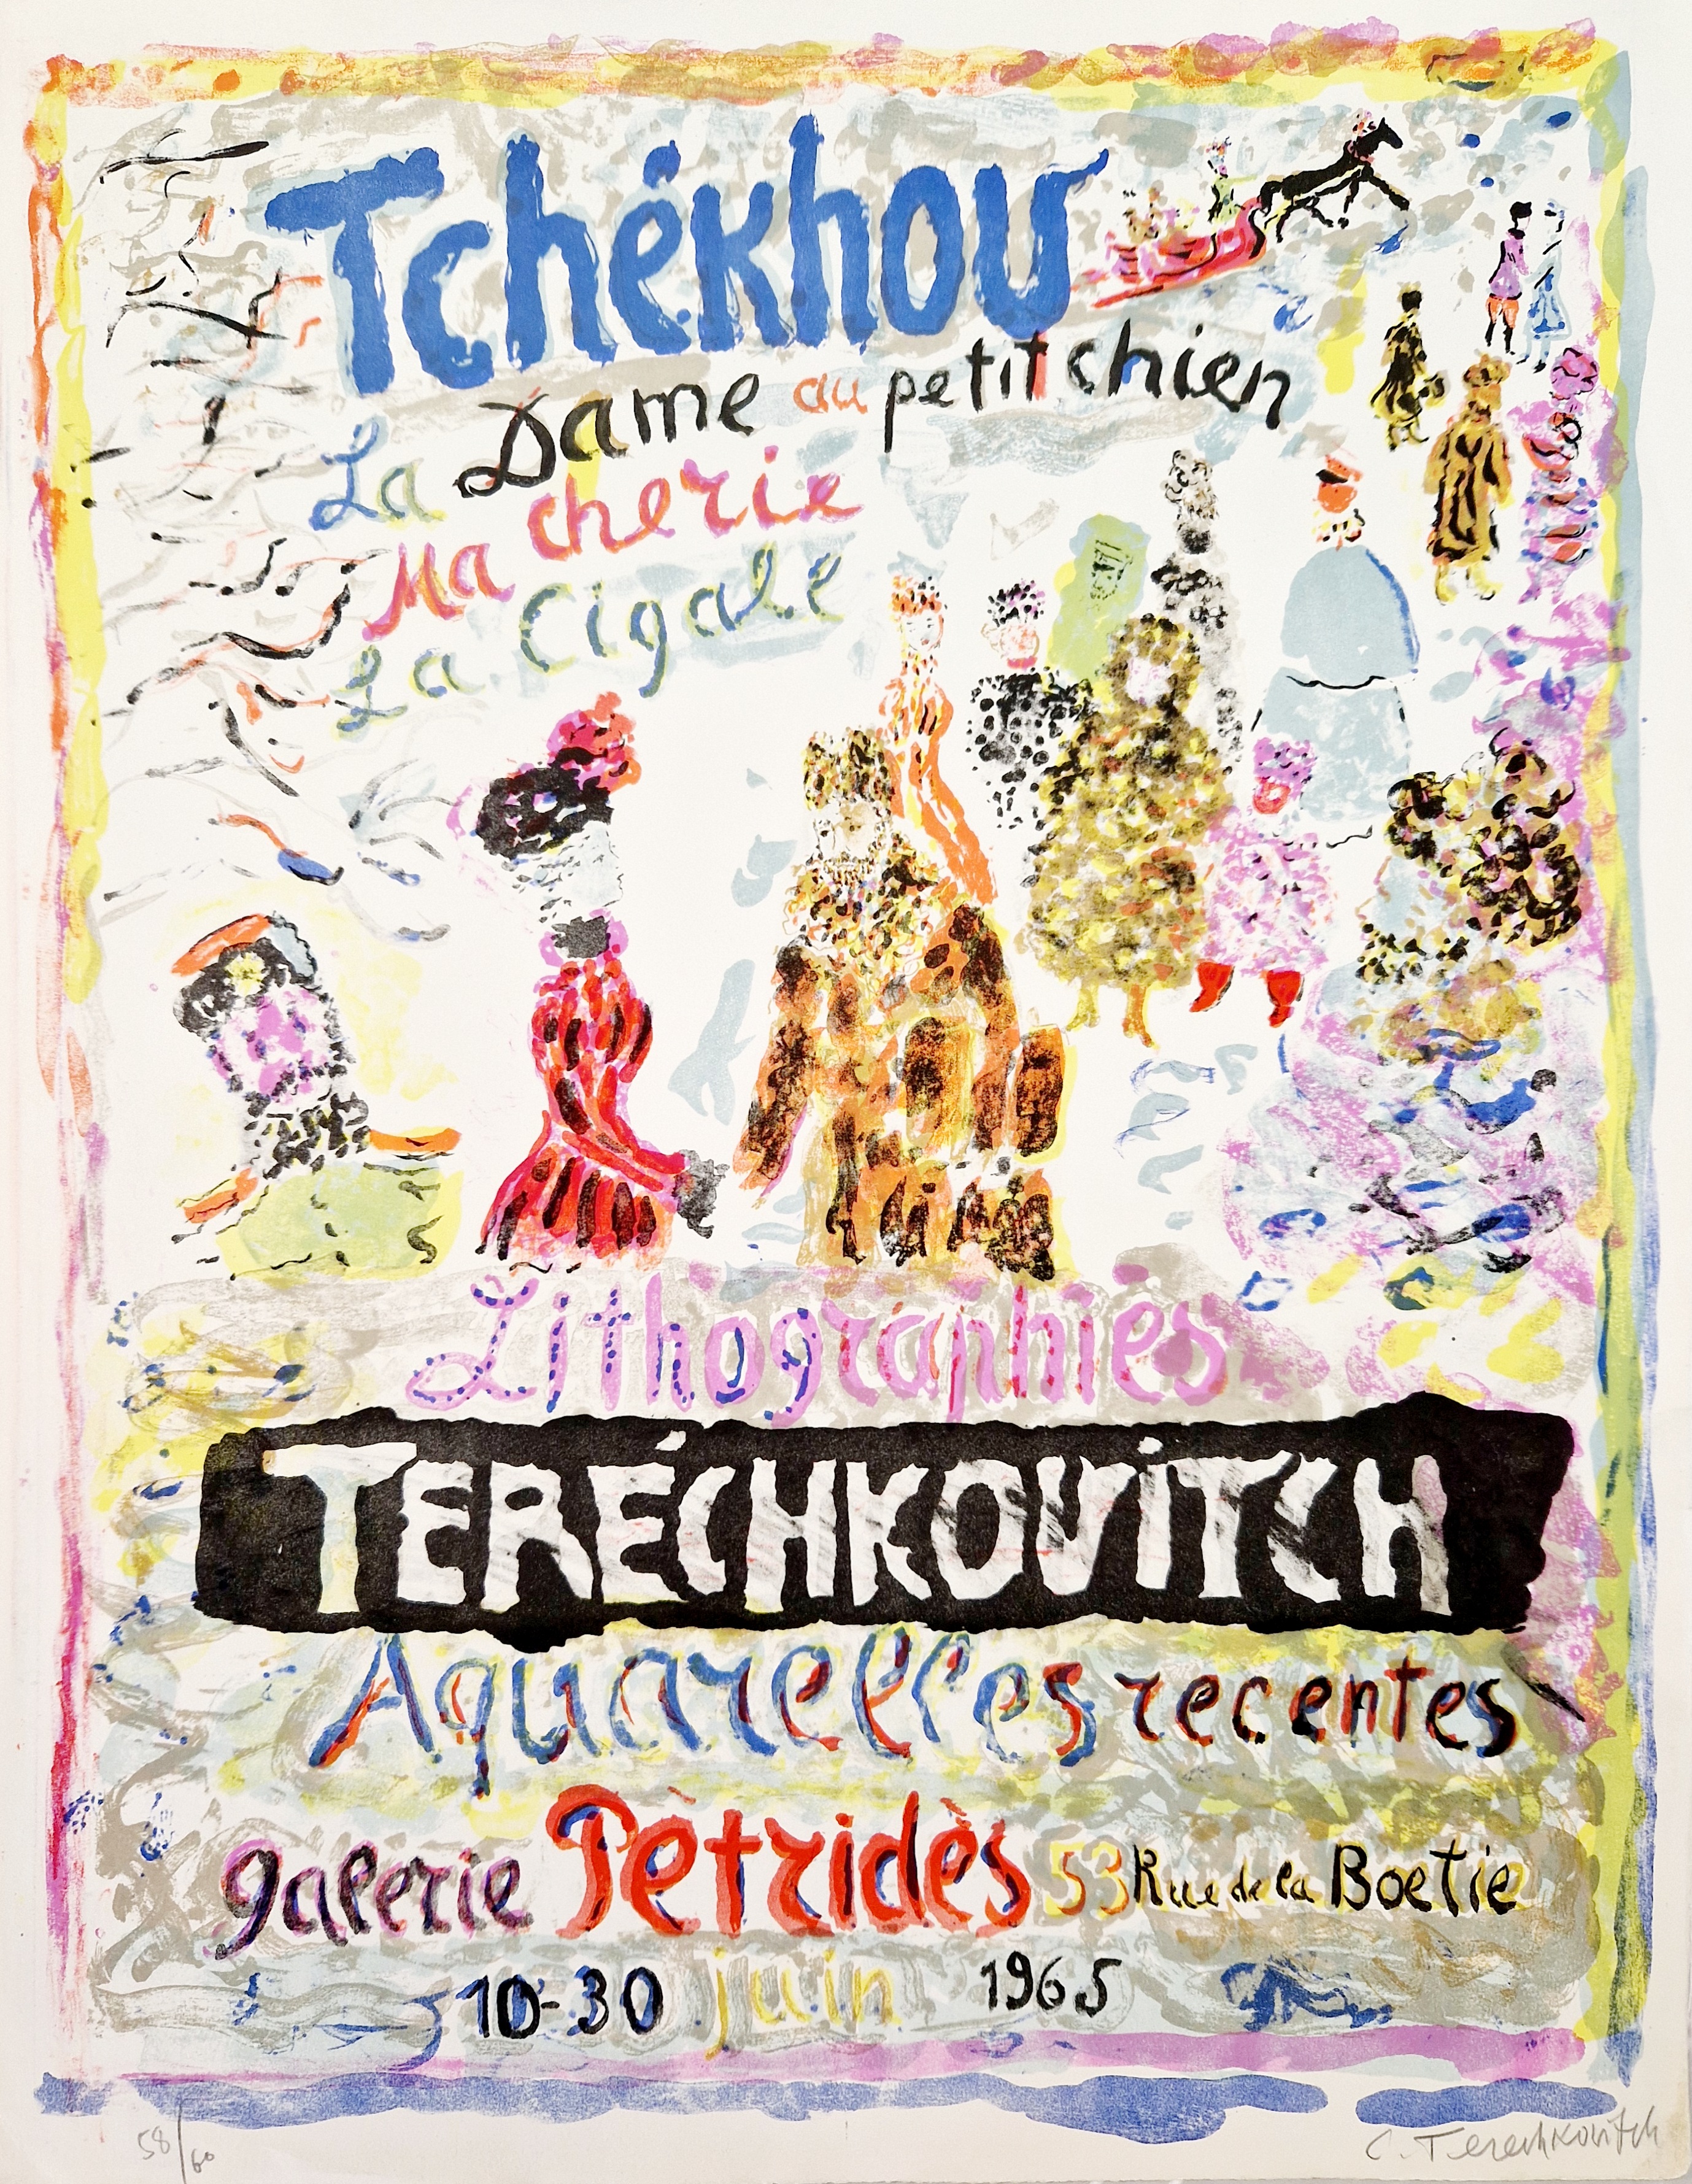 Tchékhov
La Dame au petit chien
Ma cherie
La Cigale
Lithographies
TERÉCHKOVITCH
Aquarelles recentes
galerie Pètridès 53 Rue de la Boetie
10-30 juin 1965
58/60 C. Terechkovitch